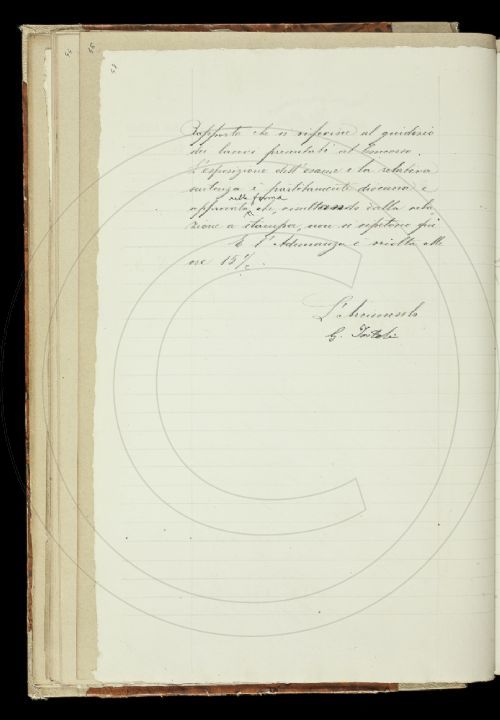 Rapporto che si riferisce al giudizio
dei lavori presentati al Concorso.
L'esposizione dell'esame e la relativa
sentenza è partitamente discussa e
approvata nella forma che, resultando dalla rela-
zione a stampa, non si repetono qui
E l'Adunanza è sciolta alle
ore 15 1/2.
L'
G.